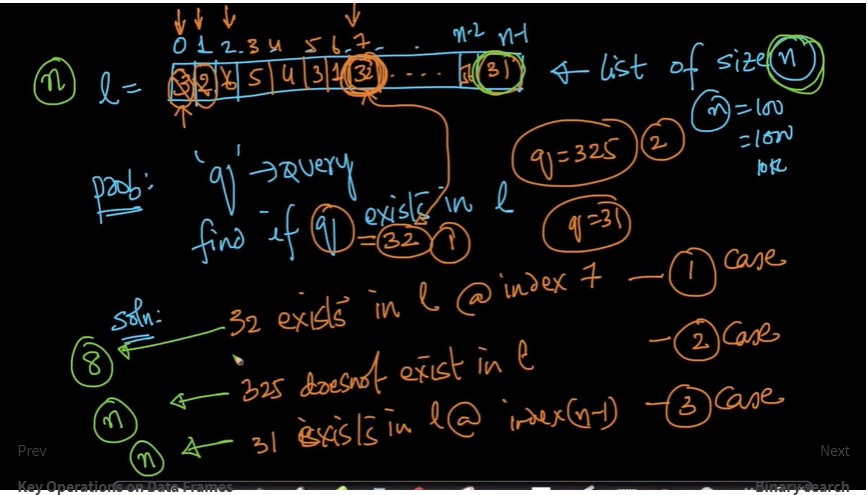 0 1 2 3 4 5 6 7 . . . n-2 n-1
n l = 3 2 5 4 3 1 32 ..... 31 ← list of size n
n = 100
= 1000
10k
q = 325 2
prob: 'q' → query
q = 31
find if q exists in l
= 32 1
soln:
32 exists in l @ index 7 — 1 Case
8
325 doesnot exist in l — 2 Case
n
31 exists in l @ index (n-1) — 3 Case
n
Prev Next
Key Operations on Data Frames Binary search